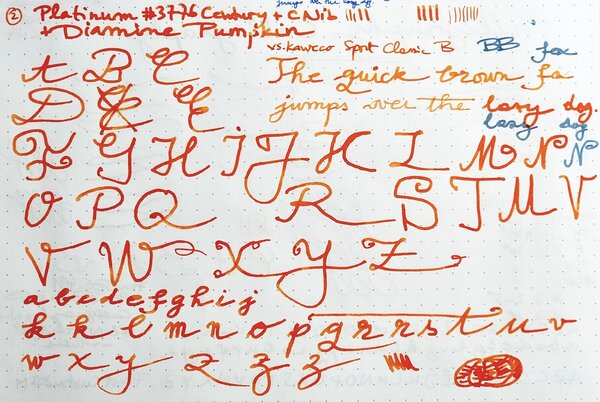 ② Platinum #3776 Century + C Nib
+ Diamine Pumpkin
vs. Kaweco Sport Classic B BB fox
The quick brown fo
jumps over the lazy dog.
lazy dog
A B C
D E E
F G H I J K L M N N
O P Q R S T U V
V W X Y Z
a b c d e f g h i j
k k l m n o p q r r s t u v
w x y z z z